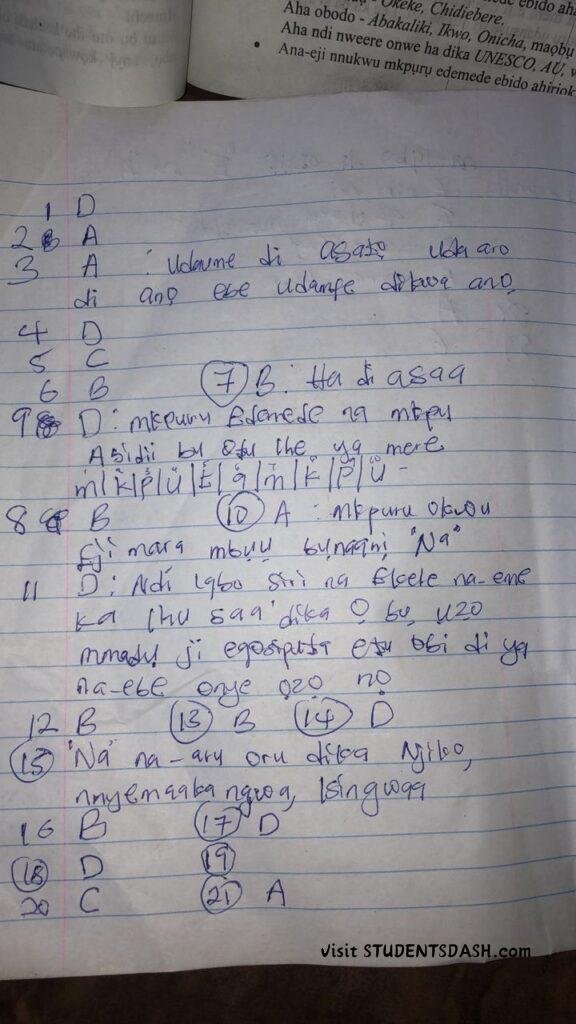 Okeke, Chidiebere.
Aha obodo - Abakaliki, Ikwo, Onicha, maọbụ
Aha ndi nweere onwe ha dika UNESCO, AU,
Ana-eji nnukwu mkpụrụ edemede ebido ahiriok
1 D
2 A
3 A : Udaume di asatọ uda aro
di anọ ebe udamfe dikwa anọ
4 D
5 C
6 B (7) B: Ha di asaa
9 D: mkpuru Edemede na mkpu
Abidii bu otu ihe ya mere
m|k|p|U|E|q|m|k|p|U
8 B (10) A : mkpuru okwu
eji mara mbụụ bụnaanị "Na"
11 D: Ndi Igbo siri na Ekele na-eme
ka ihu saa dika Ọ bụ uzo
mmadụ ji egosipụta etu obi di ya
na-ebe onye ọzọ nọ
12 B (13) B (14) D
(15) "Na" na-arụ oru dika Njikọ,
nnyemaaka ngwaa, Isingwaa
16 B (17) D
(18) D (19)
20 C (21) A
visit STUDENTSDASH.com